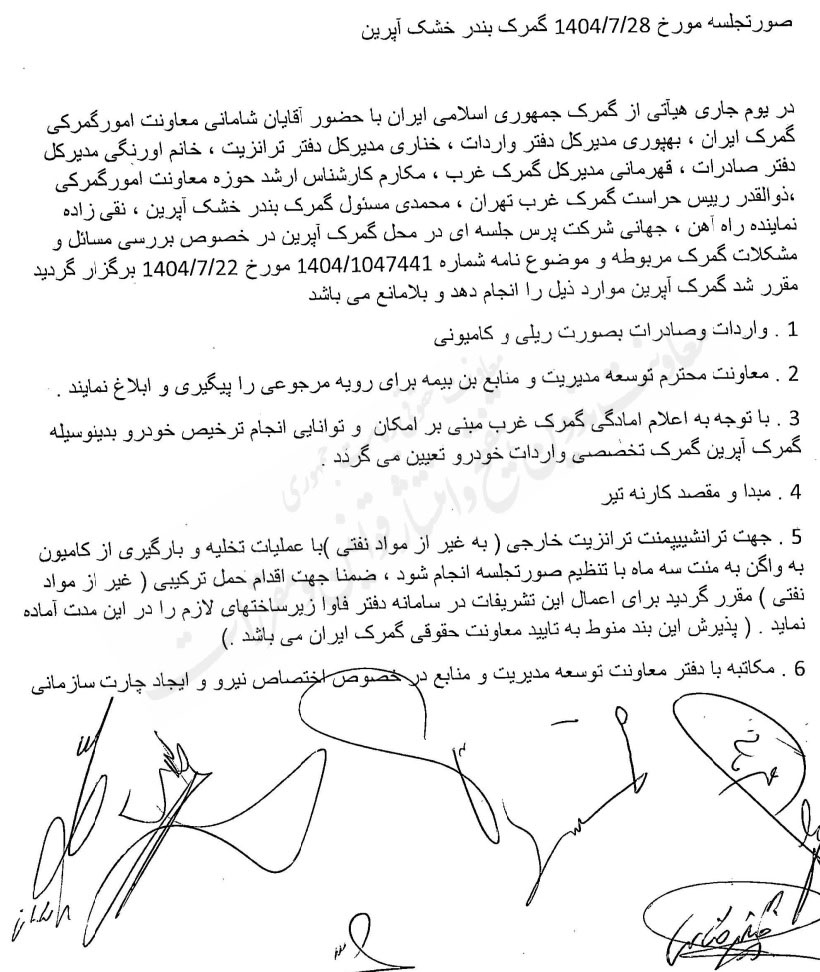 صورتجلسه مورخ 1404/7/28 گمرک بندر خشک آپرین
در یوم جاری هیأتی از گمرک جمهوری اسلامی ایران با حضور آقایان شامانی معاونت امورگمرکی
گمرک ایران ، بهپوری مدیرکل دفتر واردات ، خناری مدیرکل دفتر ترانزیت ، خانم اورنگی مدیرکل
دفتر صادرات ، قهرمانی مدیرکل گمرک غرب ، مکارم کارشناس ارشد حوزه معاونت امورگمرکی
،ذوالقدر رییس حراست گمرک غرب تهران ، محمدی مسئول گمرک بندر خشک آپرین ، نقی زاده
نماینده راه آهن ، جهانی شرکت پرس جلسه ای در محل گمرک آپرین در خصوص بررسی مسائل و
مشکلات گمرک مربوطه و موضوع نامه شماره 1404/1047441 مورخ 1404/7/22 برگزار گردید
مقرر شد گمرک آپرین موارد ذیل را انجام دهد و بلامانع می باشد
1 . واردات وصادرات بصورت ریلی و کامیونی
2 . معاونت محترم توسعه مدیریت و منابع بن بیمه برای رویه مرجوعی را پیگیری و ابلاغ نمایند .
3 . با توجه به اعلام امادگی گمرک غرب مبنی بر امکان و توانایی انجام ترخیص خودرو بدینوسیله
گمرک آپرین گمرک تخصصی واردات خودرو تعیین می گردد .
4 . مبدا و مقصد کارنه تیر
5 . جهت ترانشیپمنت ترانزیت خارجی ( به غیر از مواد نفتی )با عملیات تخلیه و بارگیری از کامیون
به واگن به مئت سه ماه با تنظیم صورتجلسه انجام شود ، ضمنا جهت اقدام حمل ترکیبی ( غیر از مواد
نفتی ) مقرر گردید برای اعمال این تشریفات در سامانه دفتر فاوا زیرساختهای لازم را در این مدت آماده
نماید . ( پذیرش این بند منوط به تایید معاونت حقوقی گمرک ایران می باشد .)
6 . مکاتبه با دفتر معاونت توسعه مدیریت و منابع در خصوص اختصاص نیرو و ایجاد چارت سازمانی